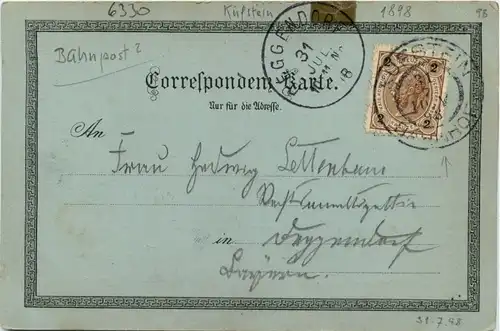 6330 Kufstein 1898 98
Bahnpost?
DEGGENDORF
31
JUL
98
KUFSTEIN BAHNHOF
2 2
Correspondenz-Karte.
Nur für die Adresse.
An
Frau Hedwig Lettenbaur
Rechtsanwaltsgattin
in Deggendorf
Bayern.
31.7.98